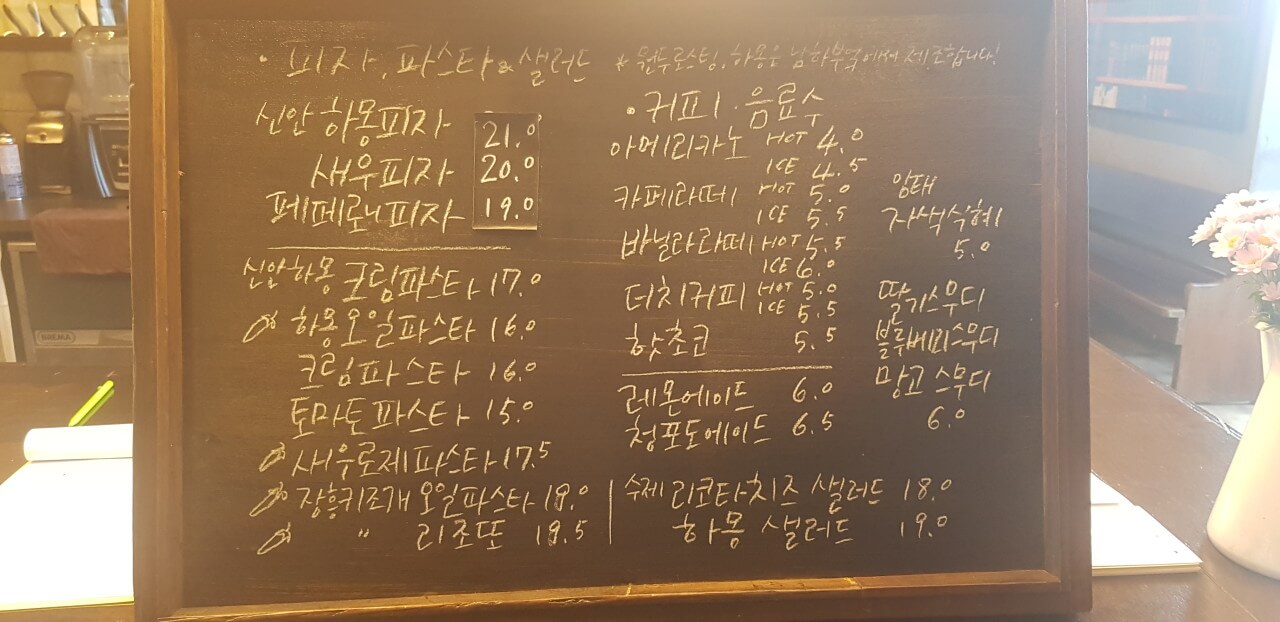 · 피자, 파스타 & 샐러드
* 원두로스팅, 하몽은 남하부엌에서 제조합니다!
신안 하몽피자 21.0
새우피자 20.0
페페로니피자 19.0
신안하몽 크림파스타 17.0
하몽오일파스타 16.0
크림파스타 16.0
토마토파스타 15.0
새우로제파스타 17.5
장흥키조개 오일파스타 18.0
" 리조또 18.5
· 커피 · 음료수
아메리카노 HOT 4.0
ICE 4.5
카페라떼 HOT 5.0
ICE 5.5
바닐라라떼 HOT 5.5
ICE 6.0
더치커피 HOT 5.0
ICE 5.5
핫쵸코 5.5
레몬에이드 6.0
청포도에이드 6.5
암태
자색식혜
5.0
딸기스무디
블루베리스무디
망고 스무디
6.0
수제 리코타치즈 샐러드 18.0
하몽 샐러드 19.0
BREMA